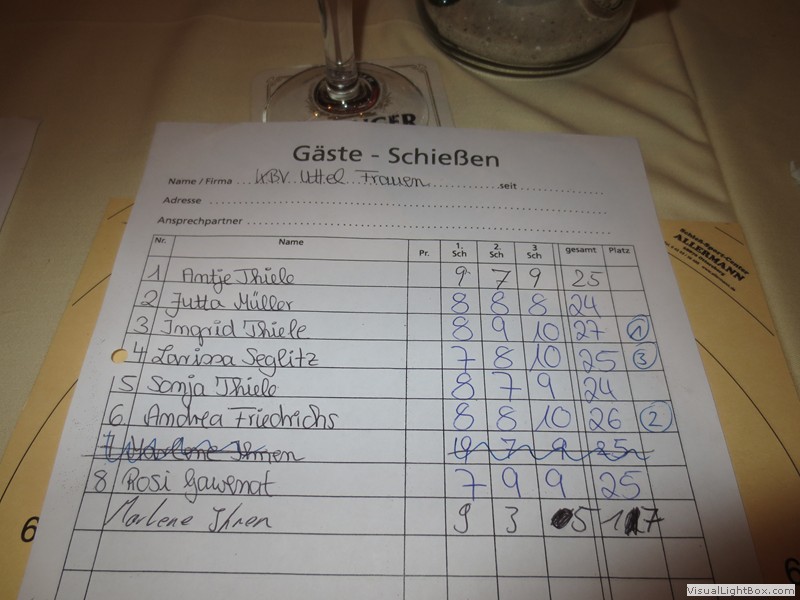 Gäste - Schießen
Name / Firma KBV Uttel Frauen seit
Adresse
Ansprechpartner
Nr. Name Pr. 1. Sch 2. Sch 3 Sch gesamt Platz
1 Antje Thiele 9 7 9 25
2 Jutta Müller 8 8 8 24
3 Ingrid Thiele 8 9 10 27 1
4 Larissa Seglitz 7 8 10 25 3
5 Sonja Thiele 8 7 9 24
6 Andrea Friedrichs 8 8 10 26 2
7 Marlene Ihnen 10 7 9 25
8 Rosi Gawenat 7 9 9 25
Marlene Ihnen 9 3 5 17
Schieß-Sport-Center
ALLERMANN
6
6
VisualLightBox.com